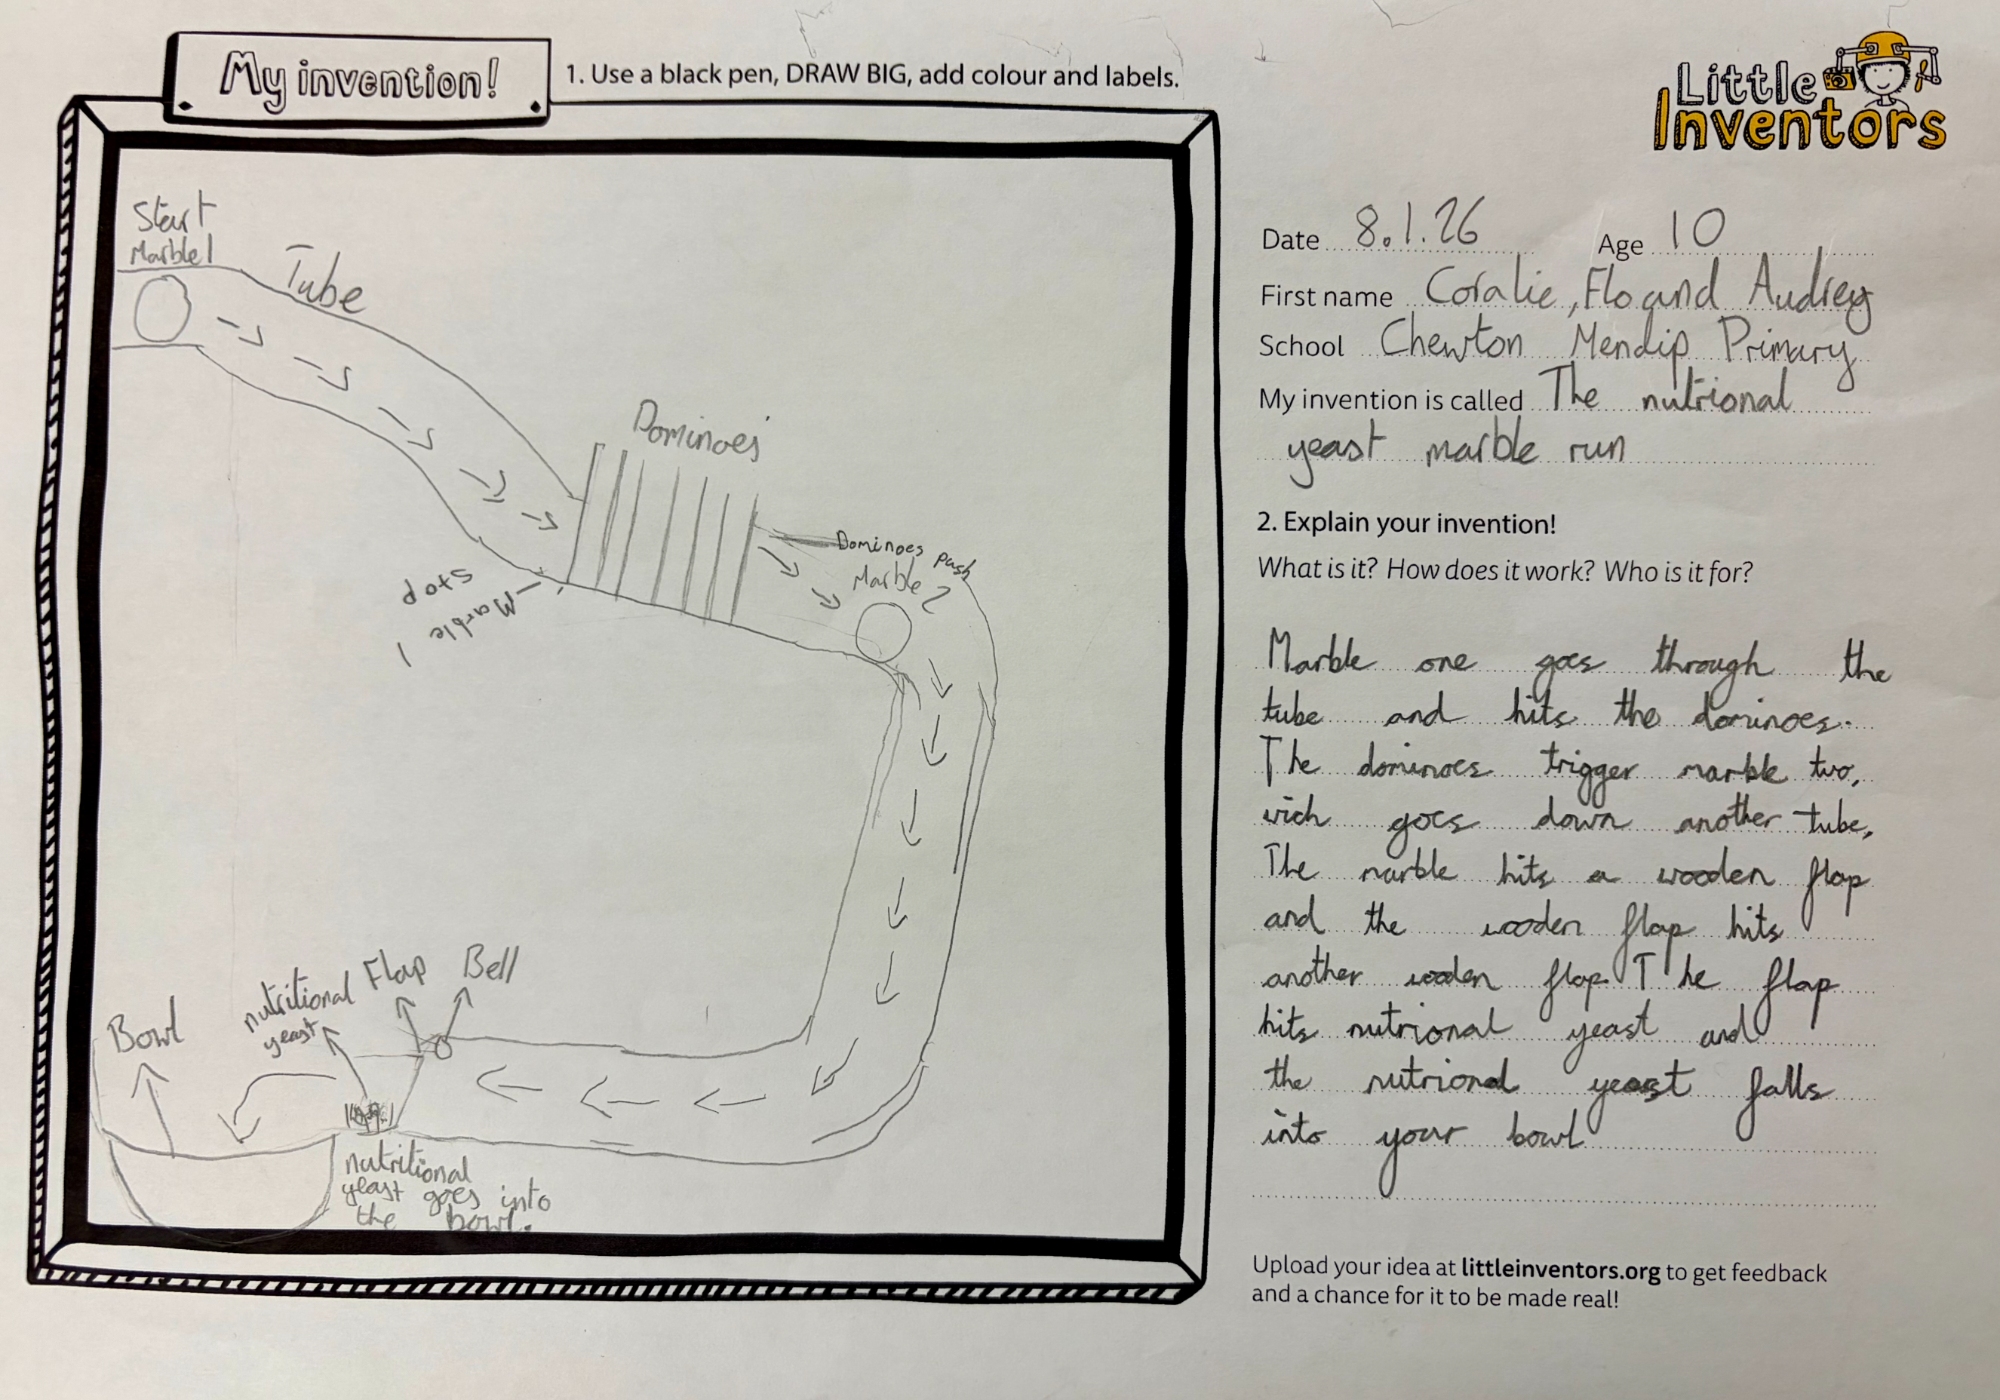 My invention!
1. Use a black pen, DRAW BIG, add colour and labels.
Little
Inventors
Start
Marble 1
Tube
Dominoes
Dominoes push
Marble 2
Marble 1
stop
Bell
Flap
nutritional
yeast
Bowl
nutritional
yeast goes into
the bowl.
Date 8.1.26 Age 10
First name Coralie, Flo and Audrey
School Chewton Mendip Primary
My invention is called The nutrional
yeast marble run
2. Explain your invention!
What is it? How does it work? Who is it for?
Marble one goes through the
tube and hits the dominoes.
The dominoes trigger marble two,
wich goes down another tube,
The marble hits a wooden flap
and the wooden flap hits
another wooden flap. The flap
hits nutrional yeast and
the nutrional yeast falls
into your bowl
Upload your idea at littleinventors.org to get feedback
and a chance for it to be made real!